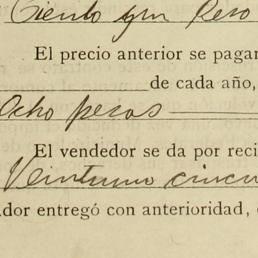 Ciento y un Peso
El precio anterior se pagar
de cada año,
Ocho pesos
El vendedor se da por reci
Veintiuno cincu
ador entregó con anterioridad,